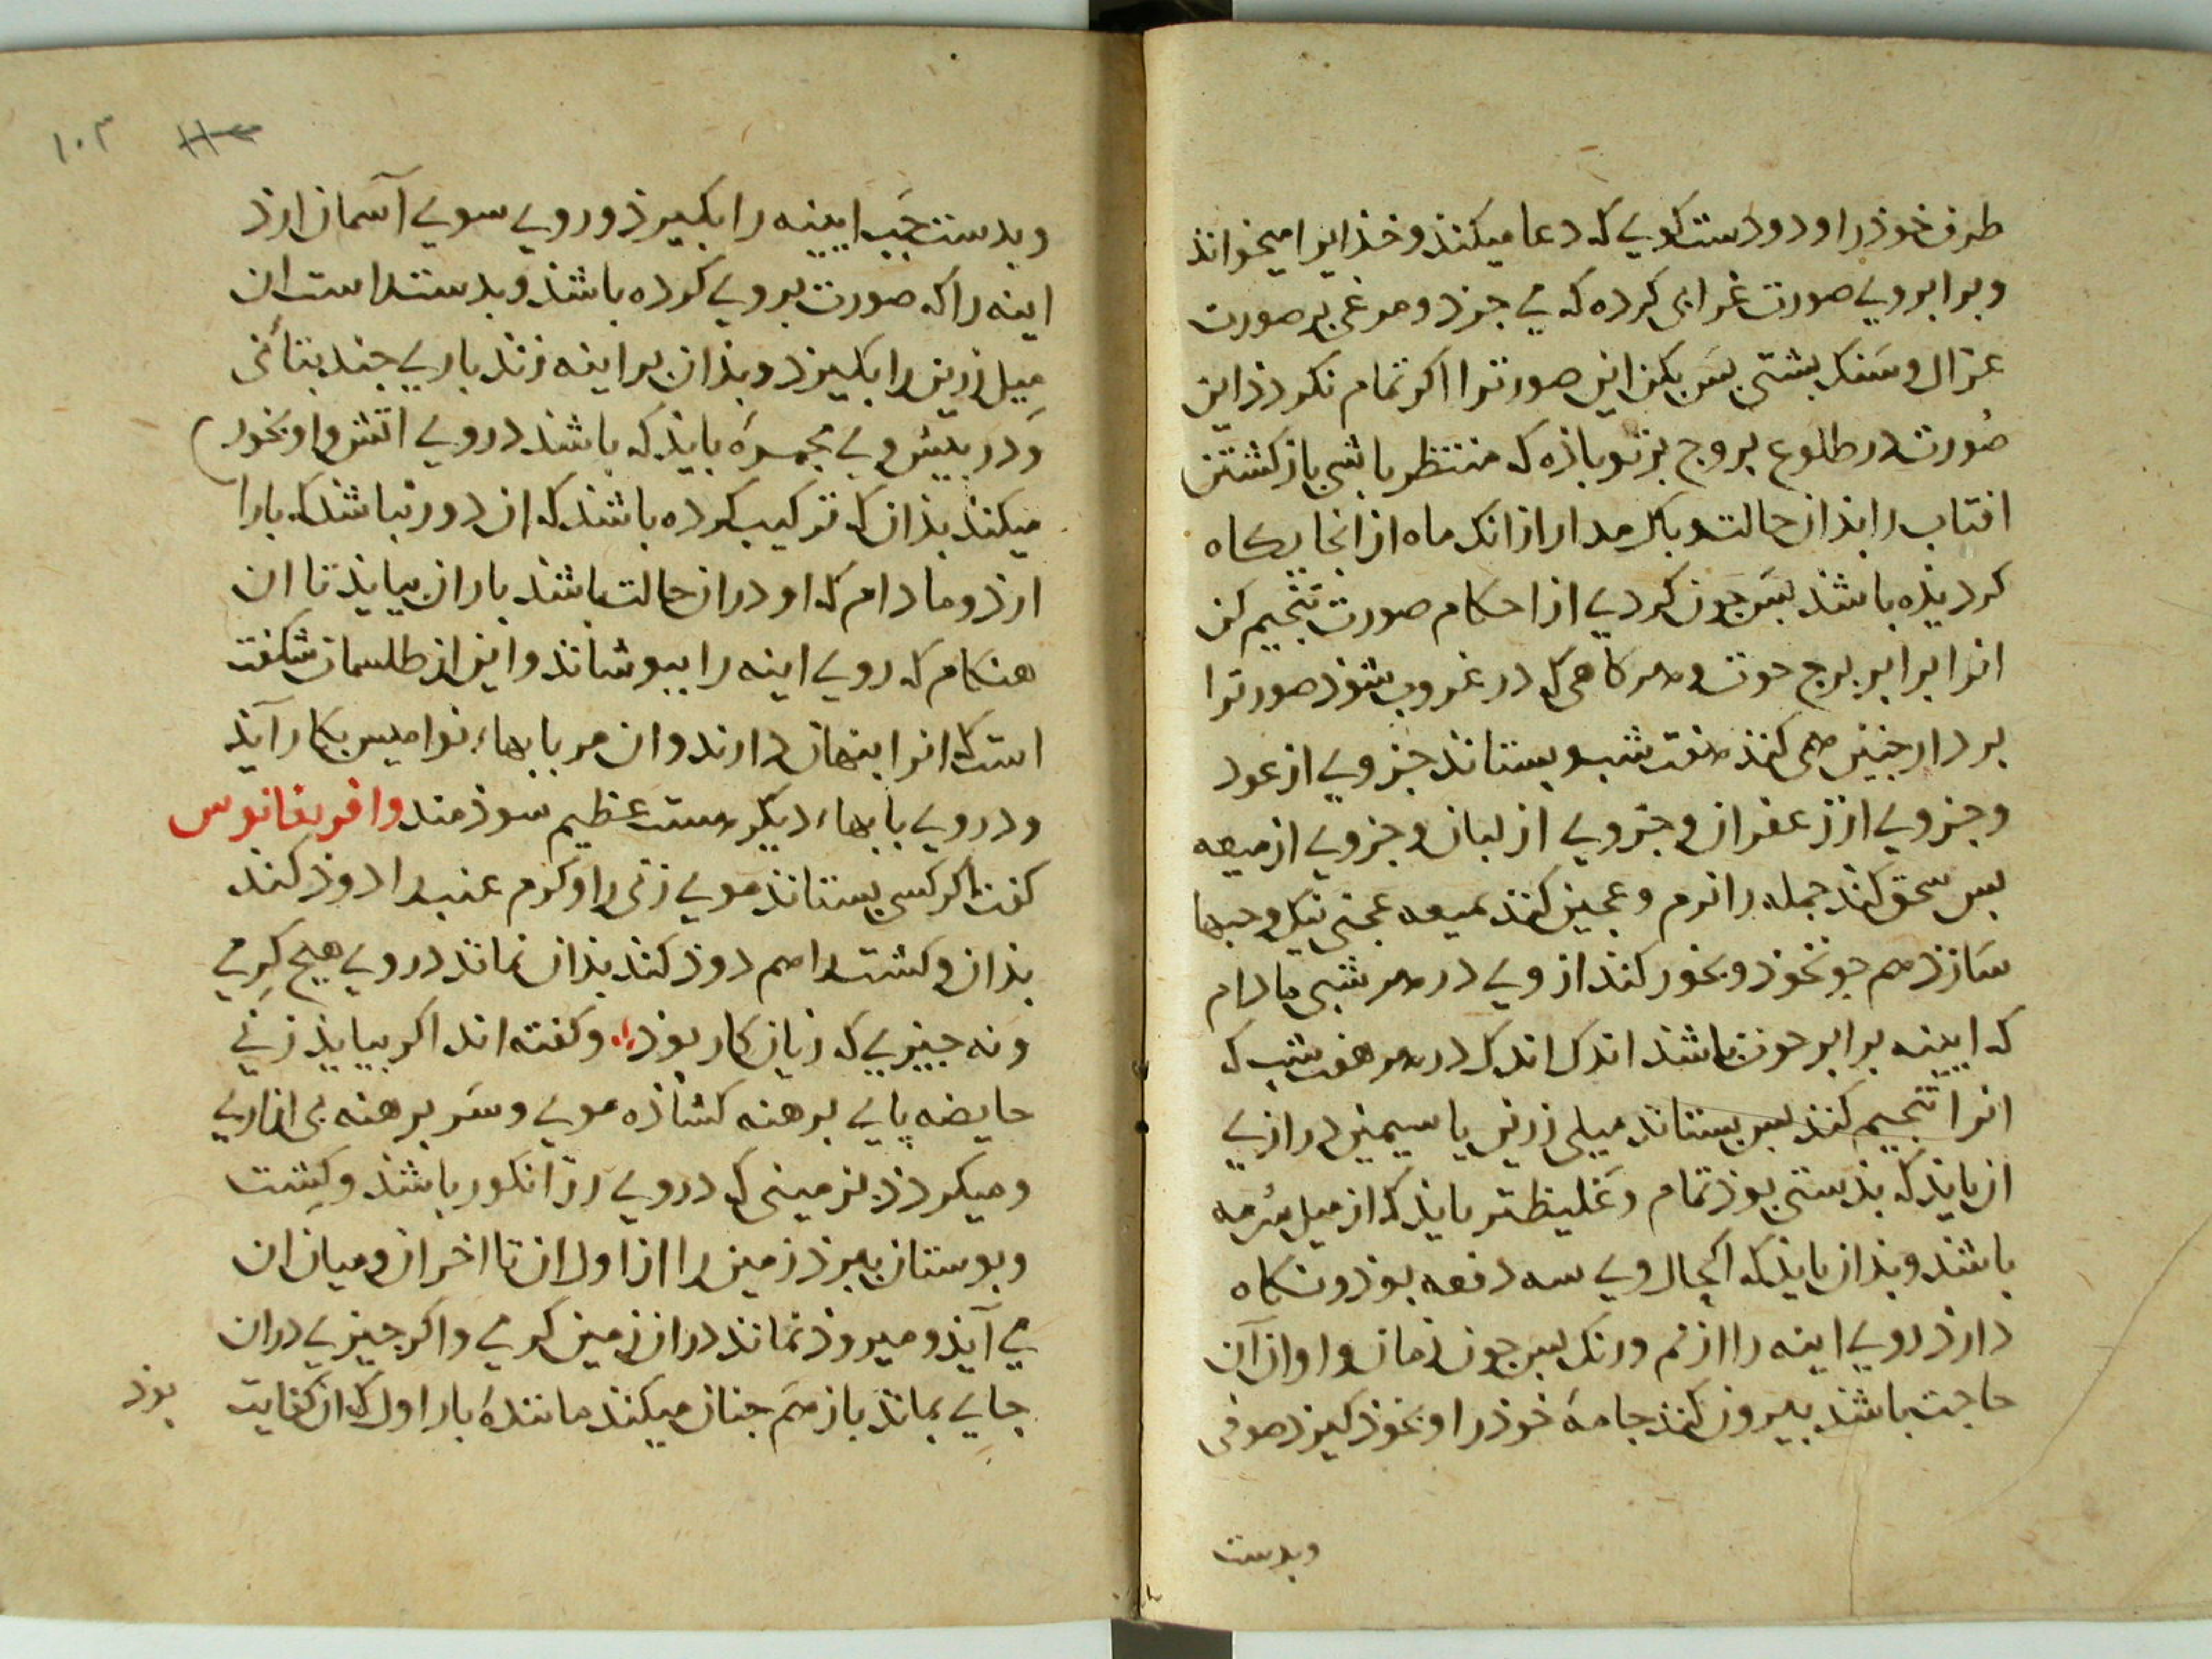 طرف خوذ را و دو دست کویی که دعا میکند و خذایرا میخواند
و برابر وی صورت غزالی کرده که می جرذ و مرغی بر صورت
غزال و سنک بشتی بس بکن این صورترا اکر تمام نکردذ این
صورت در طلوع بروج بزتو باذه که منتظر باشی باز کشتن
افتاب را بذان حالت و باک مدار از انک ماه از انجایکاه
کردیذه باشذ بس جون کردی از احکام صورت تنجیم کن
انرا برابر برج حوت و هر کاهی که در غروب شوذ صورترا
بردار جنین همی کنند هفت شب و بستاند جزوی از عود
و جزوی از زعفران و جزوی از لبان و جزوی از میعه
بس سحق کند جمله را نرم و عجین کند بمیعه عجنی نیک و حبها
سازذ هم جو نخوذ و بخور کند از وی در هر شبی مادام
که ایینه برابر حوت باشذ اندک اندک در هر هفت شب که
انرا تنجیم کنند بس بستاند میلی زرین یا سیمین درازی
ان بایذ که بذستی بوذ تمام و غلیظتر بایذ که از میل سرمه
باشذ و بذان بایذ که اکتحال وی سه دفعه بوذ و نکاه
دارذ روی اینه را از نم و رنک بس جون زمان و اوان آن
حاجت باشذ بیرون کند جامهٔ خوذ را و بخوذ کیرذ صوفی
وبدست
۱۰۳
و بدست جب ایینه را بکیرذ و روی سوی آسمان ارذ
اینه را که صورت بروی کرده باشذ و بدست راست ان
میل زرین را بکیرذ و بذان بر اینه زند باری جند بتانی
و در بیش وی مجمره بایذ که باشذ در وی اتش و او بخور
میکند بذان که ترکیب کرده باشذ که ان دور نباشذ که بارا
ارذ و مادام که او در ان حالت باشذ باران بیایذ تا ان
هنکام که روی اینه را ببوشاند و این از طلسمات شکفت
است که انرا بنهان دارند و ان مر بابهاء نوامیس بکار آیذ
و در وی بابهاء دیکر هست عظیم سوذمند وافریغانوس
کفت اکر کسی بستاند موی زنی را و کرم عنب را دوذ کند
بذان و کشت را هم دوذ کند بذان نماند در وی هیج کرمی
و نه جیزی که زیان کار بوذ و کفته اند اکر بیایذ زنی
حایضه پای برهنه کشاذه موی و سر برهنه بی ازاری
و میکردذ بزمینی که در وی رز انکور باشذ و کشت
و بوستان ببرذ زمین را از اول ان تا اخر ان و میان ان
می آیذ و میروذ نماند در ان زمین کرمی و اکر جیزی در ان
جای بماند باز هم جنان میکند مانندهٔ بار اول که ان کفایت
بوذ